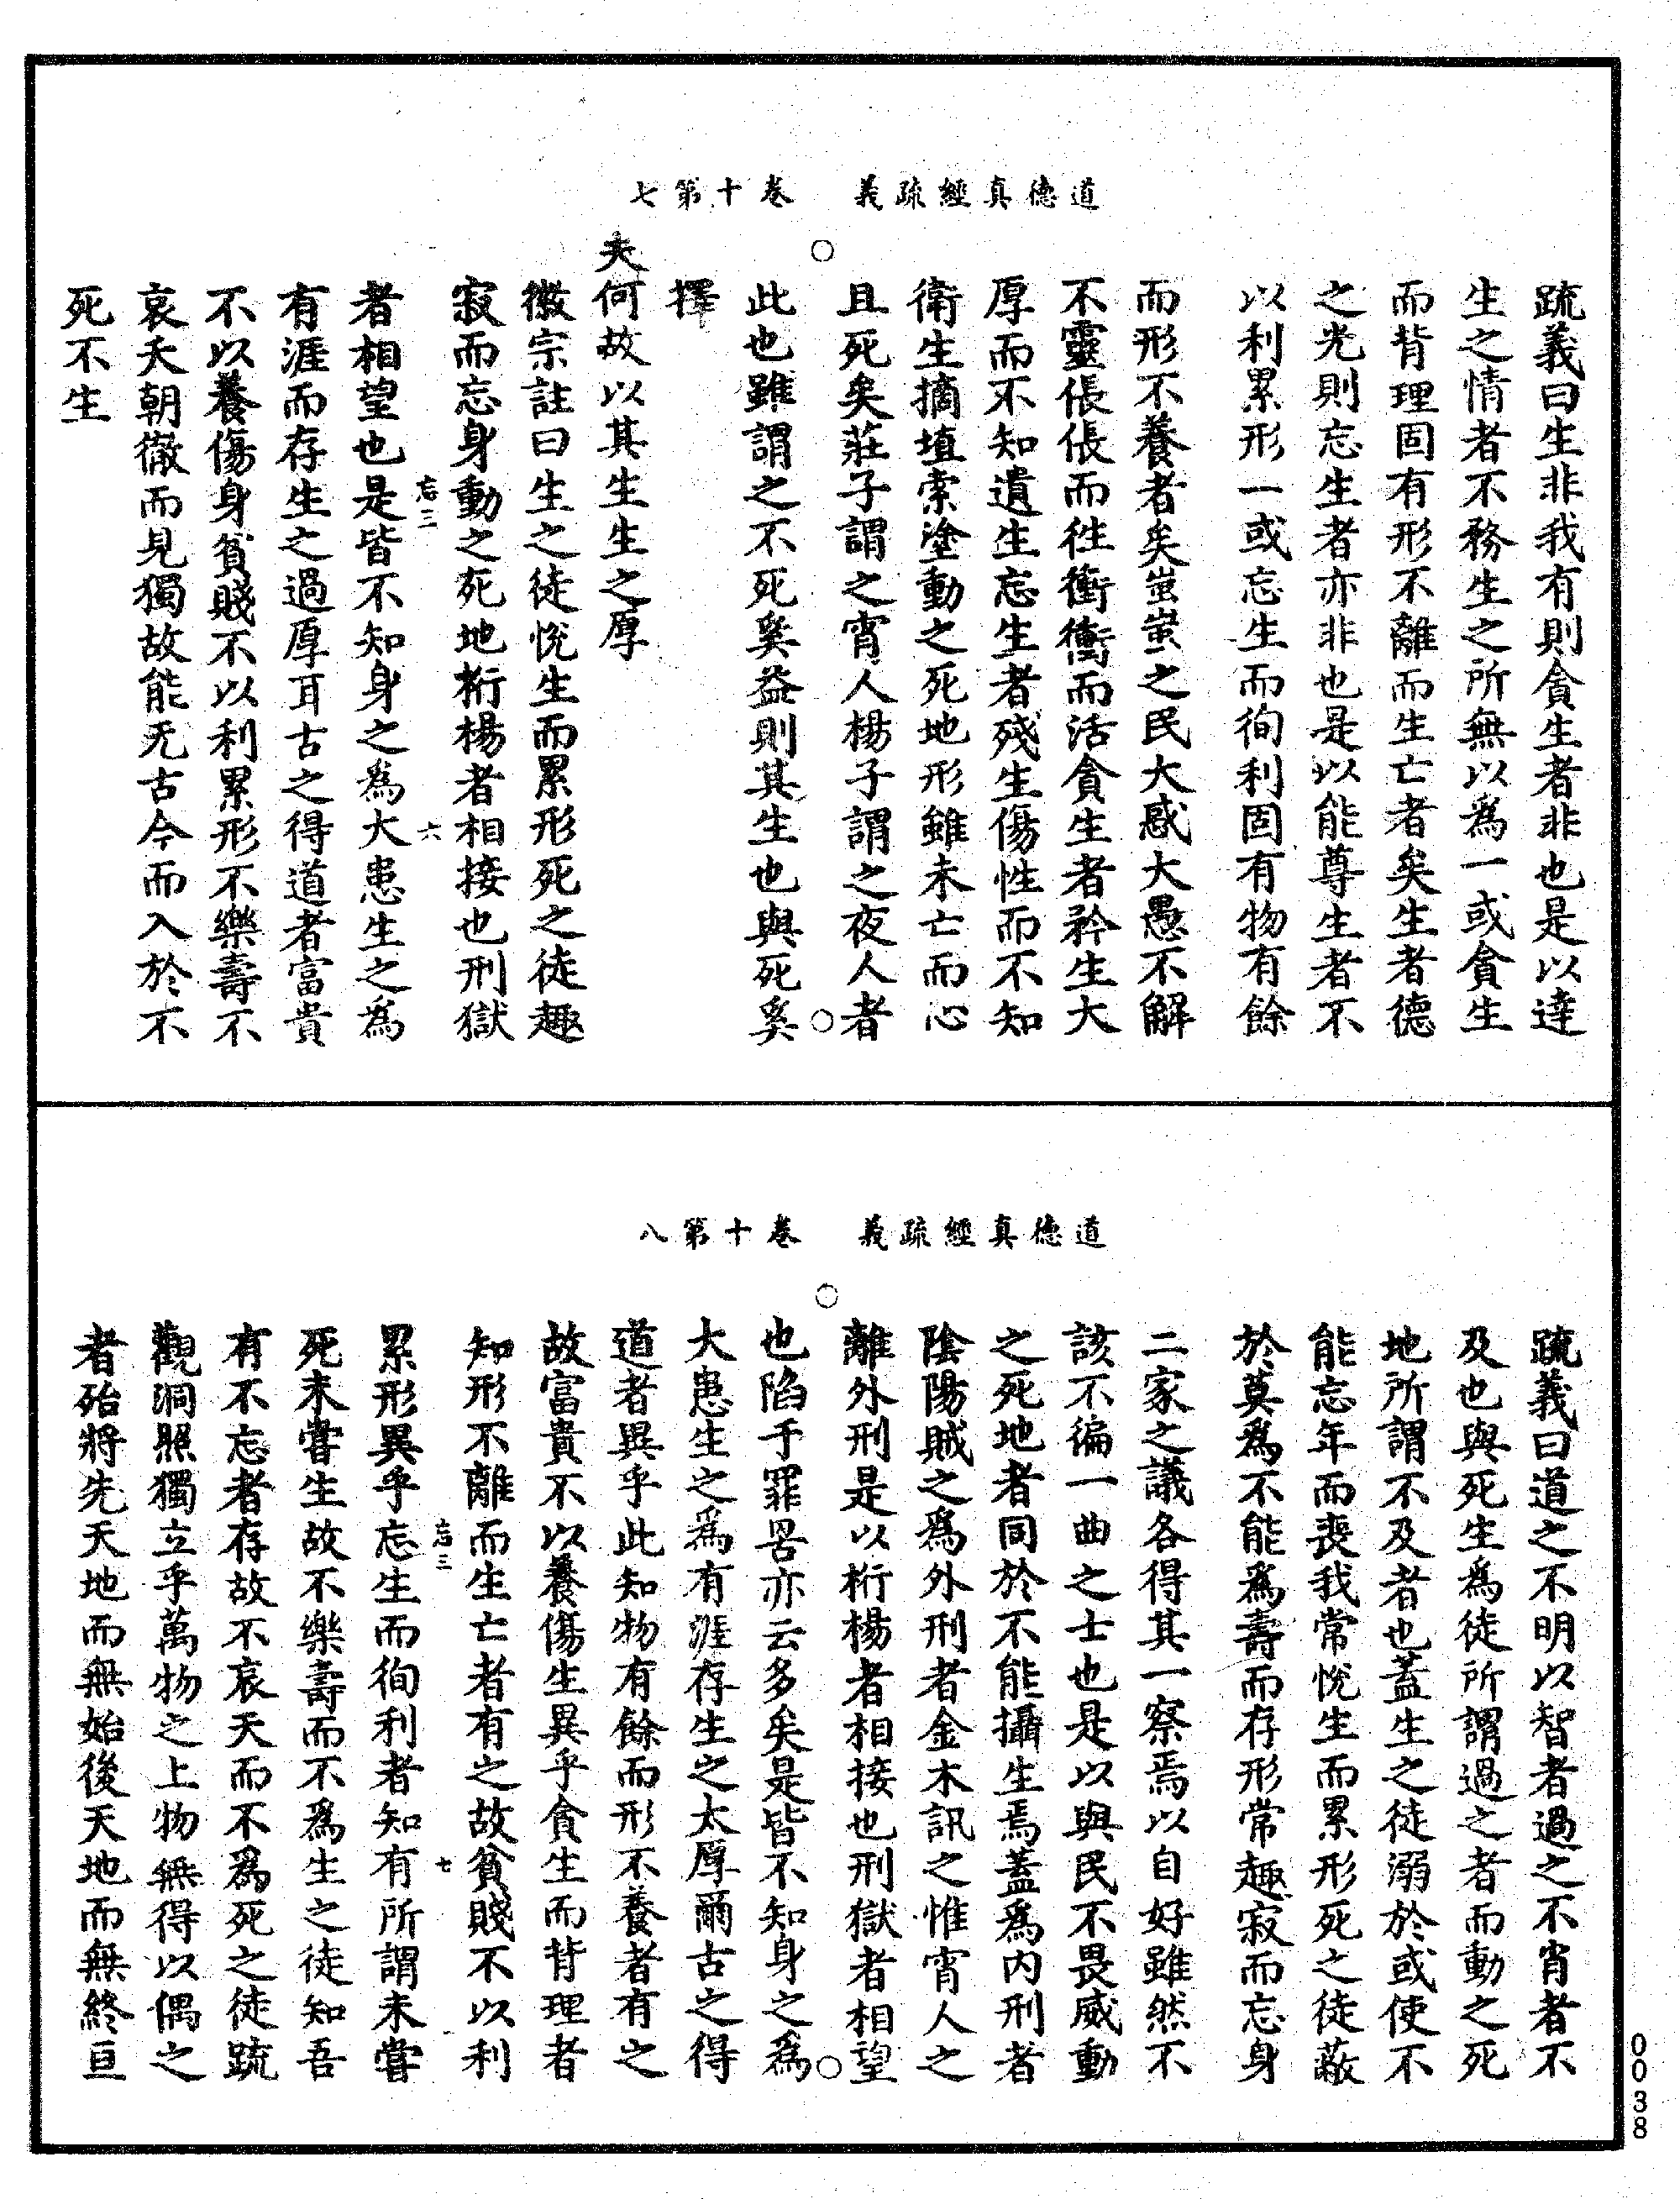 道德真經疏義　卷十第七
疏義曰生非我有則貪生者非也是以達
生之情者不務生之所無以爲一或貪生
而背理固有形不離而生亡者矣生者德
之光則忘生者亦非也是以能尊生者不
以利累形一或忘生而徇利固有物有餘
而形不養者矣蚩蚩之民大惑大愚不解
不靈倀倀而徃衝衝而活貪生者矜生大
厚而不知遺生忘生者殘生傷性而不知
衛生擿埴索塗動之死地形雖未亡而心
且死矣莊子謂之宵人楊子謂之夜人者
此也雖謂之不死奚益則其生也與死奚
擇
夫何故以其生生之厚
徽宗註曰生之徒悅生而累形死之徒趣
寂而忘身動之死地桁楊者相接也刑獄
忘三　六
者相望也是皆不知身之爲大患生之爲
有涯而存生之過厚耳古之得道者富貴
不以養傷身貧賤不以利累形不樂壽不
哀夭朝徹而見獨故能无古今而入於不
死不生
道德真經疏義　卷十第八
疏義曰道之不明以智者過之不肖者不
及也與死生爲徒所謂過之者而動之死
地所謂不及者也蓋生之徒溺於或使不
能忘年而喪我常悅生而累形死之徒蔽
於莫爲不能爲壽而存形常趣寂而忘身
二家之議各得其一察焉以自好雖然不
該不徧一曲之士也是以與民不畏威動
之死地者同於不能攝生焉蓋爲内刑者
陰陽賊之爲外刑者金木訊之惟宵人之
離外刑是以桁楊者相接也刑獄者相望
也陷于罪罟亦云多矣是皆不知身之爲
大患生之爲有涯存生之太厚爾古之得
道者異乎此知物有餘而形不養者有之
故富貴不以養傷生異乎貪生而背理者
知形不離而生亡者有之故貧賤不以利
忘三　七
累形異乎忘生而徇利者知有所謂未嘗
死未嘗生故不樂壽而不爲生之徒知吾
有不忘者存故不哀夭而不爲死之徒疏
觀洞照獨立乎萬物之上物無得以偶之
者殆將先天地而無始後天地而無終亘
0038